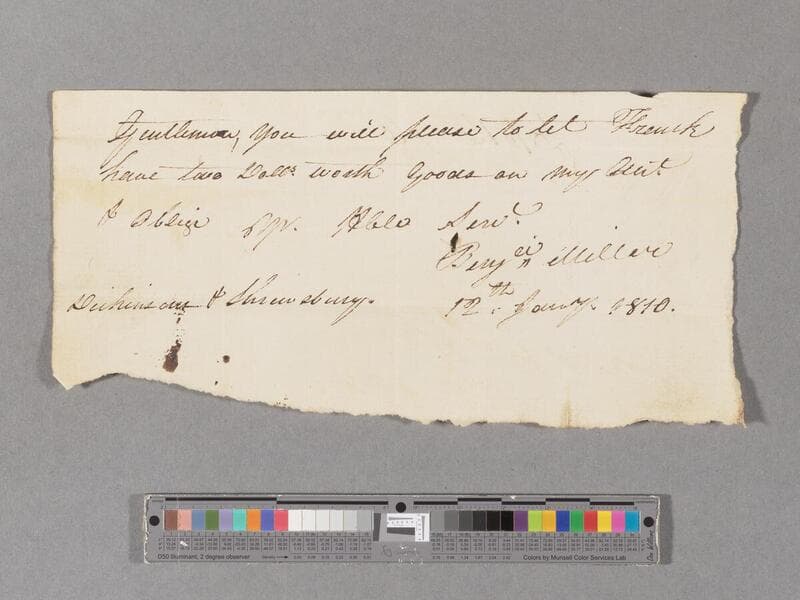 Gentlemen, you will please to let French
have two Dolls worth Goods on my Acct.
& Oblige yr. Hble Servt.
Benjn Miller
Dickinson & Shrewsbury. 12th. Jany. 1810.
D50 Illuminant, 2 degree observer
Colors by Munsell Color Services Lab